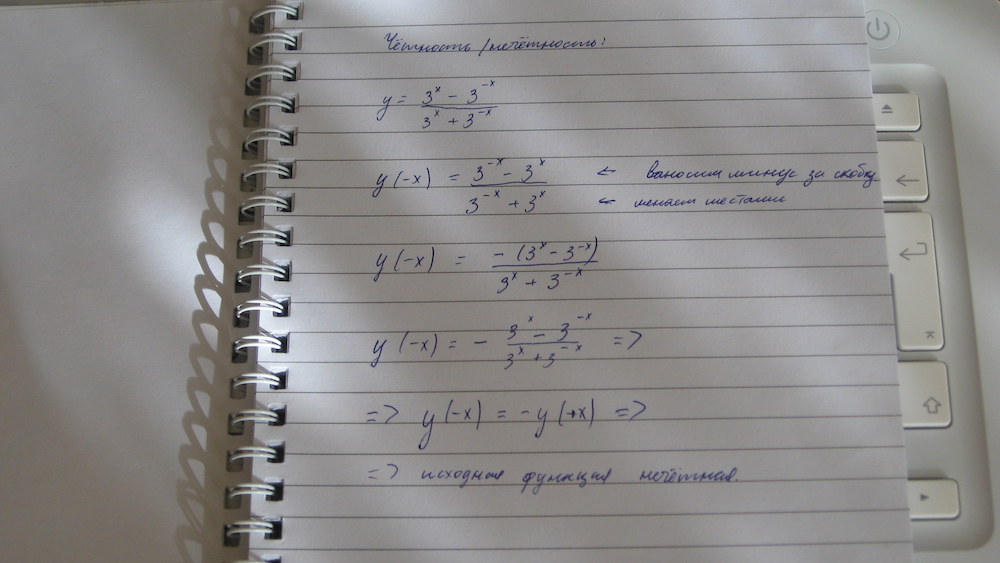 Чётность/нечётность:
y = (3^x - 3^-x) / (3^x + 3^-x)
y(-x) = (3^-x - 3^x) / (3^-x + 3^x) ← выносим минус за скобку ← меняем местами
y(-x) = -(3^x - 3^-x) / (3^x + 3^-x)
y(-x) = - (3^x - 3^-x) / (3^x + 3^-x) =>
=> y(-x) = -y(+x) =>
=> исходная функция нечётная.